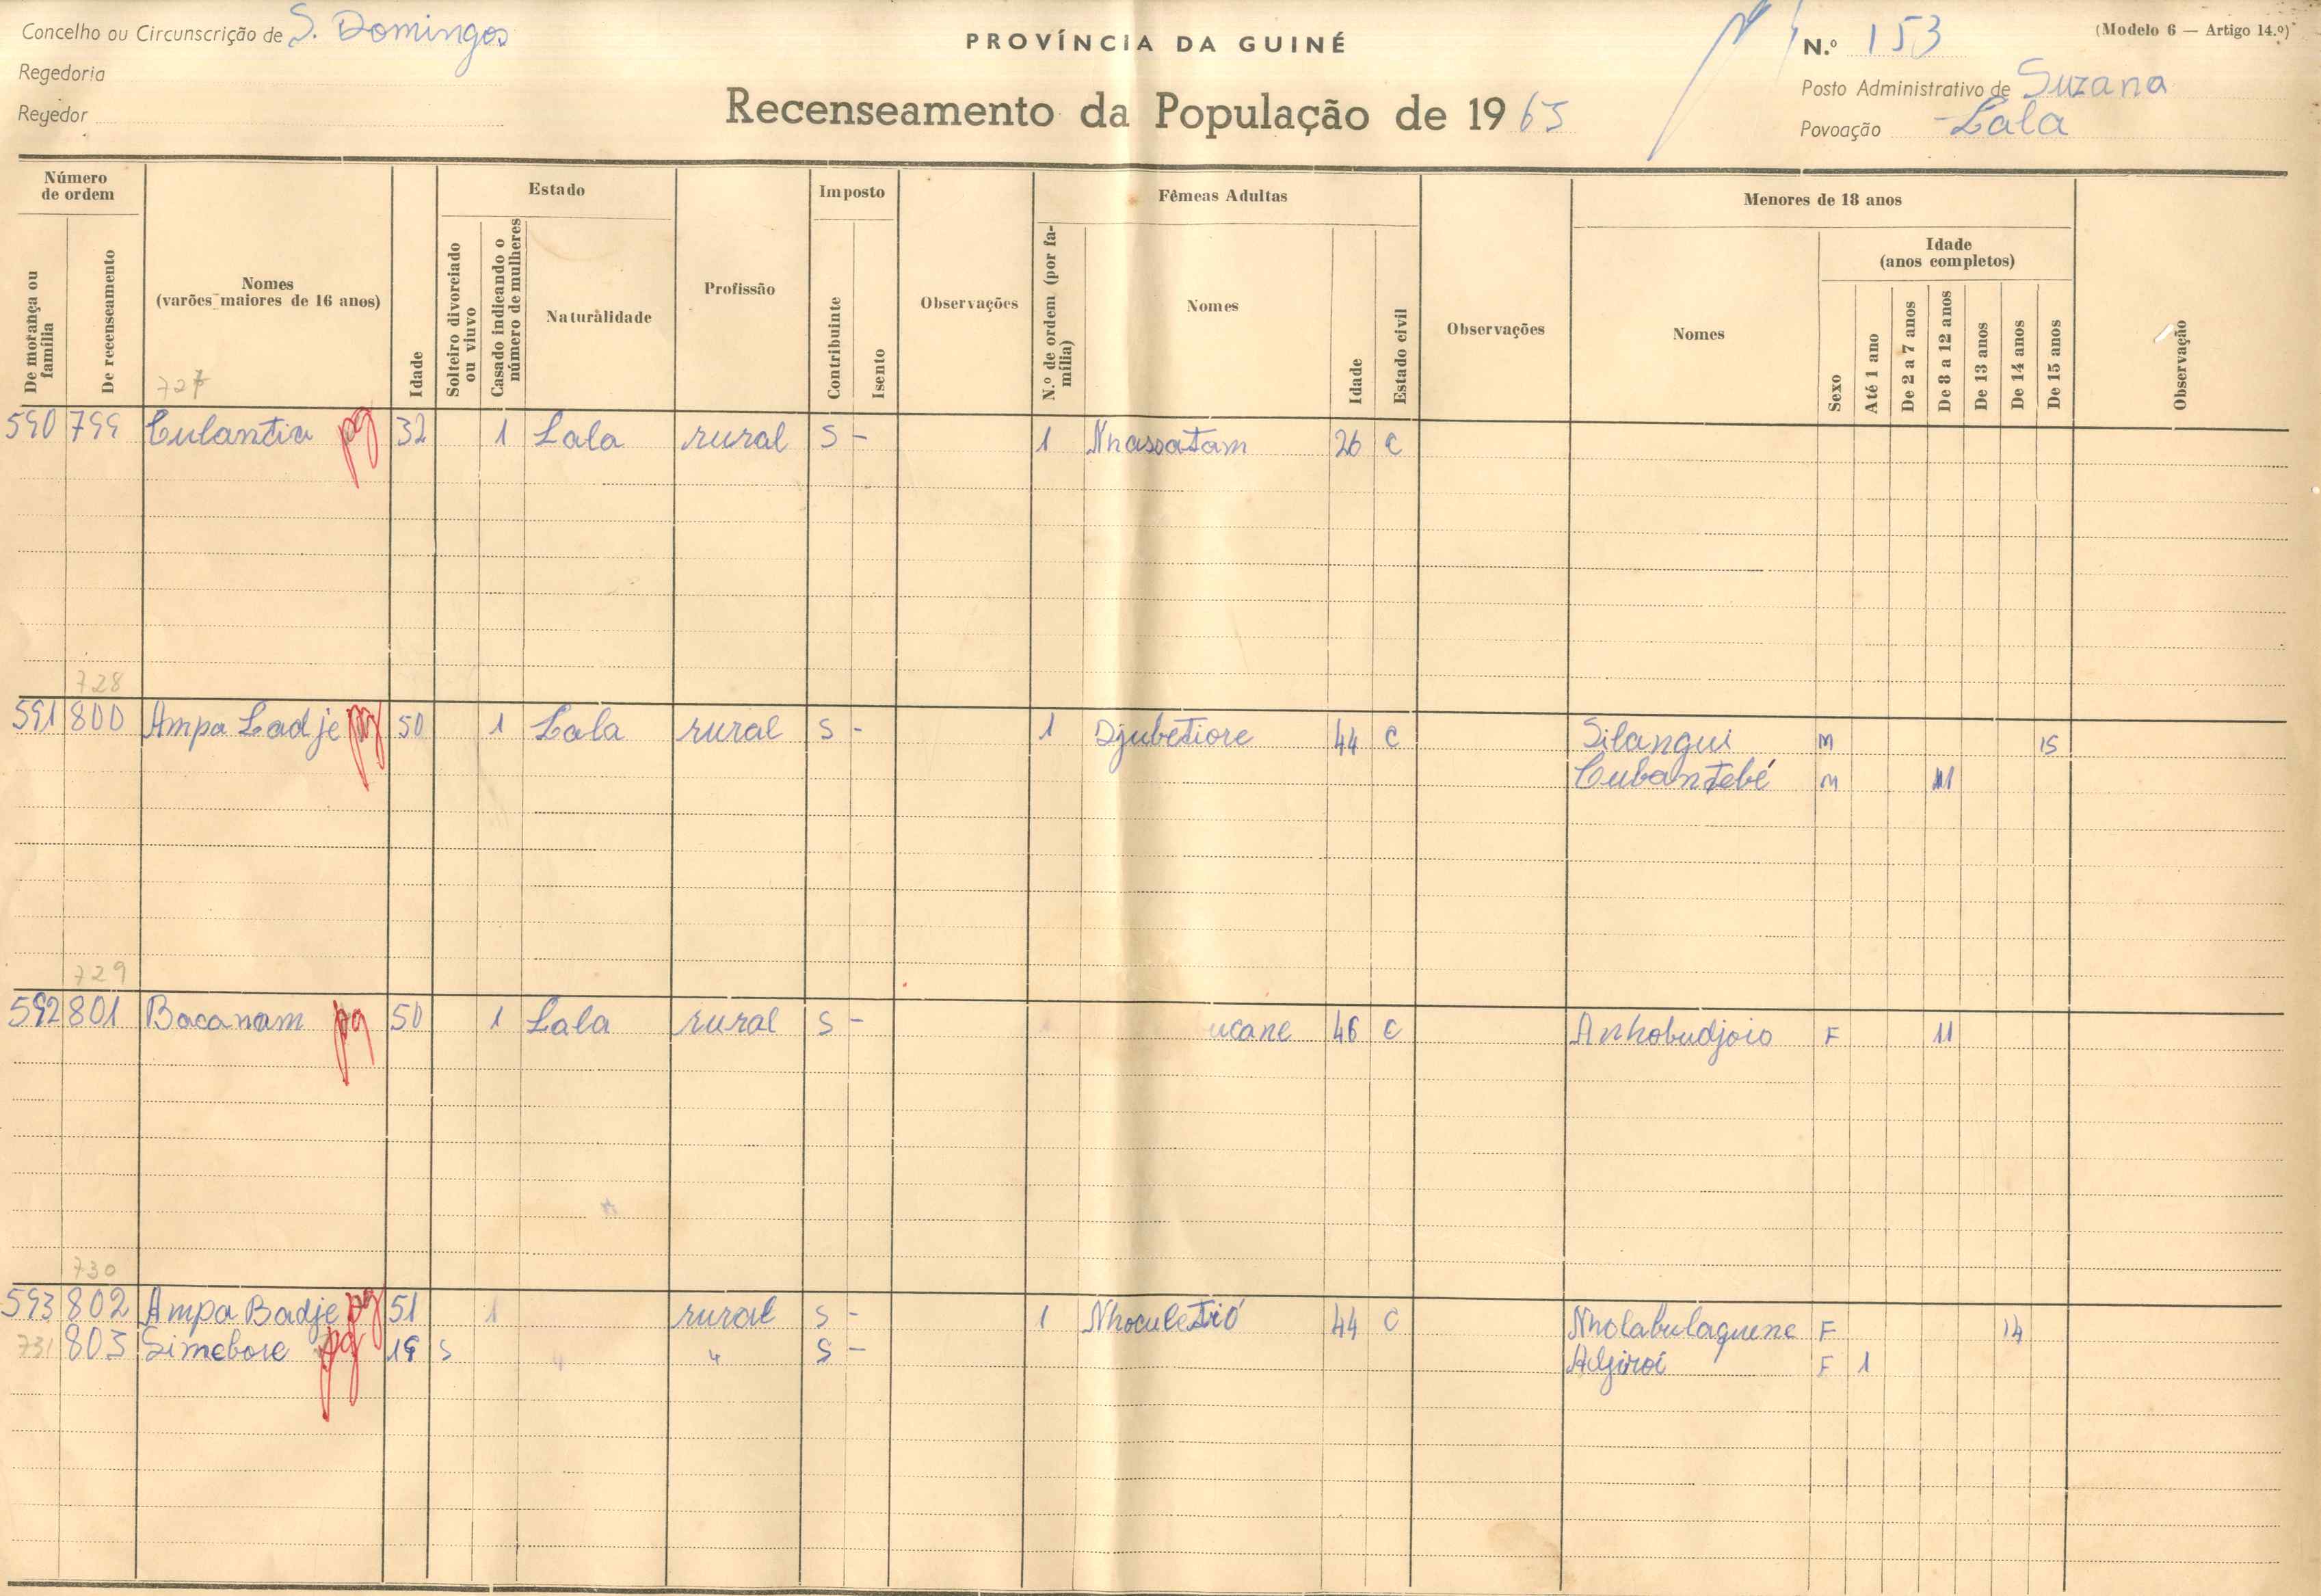 Concelho ou Circunscrição de S. Domingos
Regedoria
Regedor
PROVÍNCIA DA GUINÉ
Recenseamento da População de 1965
(Modelo 6 — Artigo 14.º)
N.º 153
Posto Administrativo de Suzana
Povoação Lala
Número de ordem
De morança ou família
De recenseamento
Nomes (varões maiores de 16 anos)
Idade
Estado
Solteiro divorciado ou viuvo
Casado indicando o número de mulheres
Naturalidade
Profissão
Imposto
Contribuinte
Isento
Observações
Fêmeas Adultas
N.º de ordem (por família)
Nomes
Idade
Estado civil
Observações
Menores de 18 anos
Nomes
Sexo
Idade (anos completos)
Até 1 ano
De 2 a 7 anos
De 8 a 12 anos
De 13 anos
De 14 anos
De 15 anos
Observação
727
590 799 Culantia pg 32 1 Lala rural S - 1 Nhassatam 26 C
728
591 800 Ampa Ladje pg 50 1 Lala rural S - 1 Djubetiore 44 C Silangui M 15
Cubantebé M 11
729
592 801 Bacanam pg 50 1 Lala rural S - ucane 46 C Anhobudjoio F 11
730
593 802 Ampa Badje pg 51 1 rural S - 1 Nhoculetió 44 C Nholabulaquene F 14
731 803 Simebore pg 19 S " " S - F 1